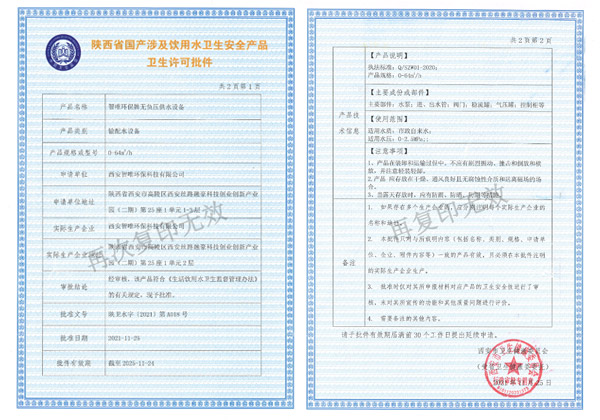 陕西省国产涉及饮用水卫生安全产品
卫生许可批件
共2页第1页
产品名称
智唯环保牌无负压供水设备
产品类别
输配水设备
产品规格或型号
0-64m³/h
申请单位
西安智唯环保科技有限公司
申请单位地址
陕西省西安市高陵区西安丝路融豪科技创业创新产业
园(二期)第25座1单元1-3层
实际生产企业
西安智唯环保科技有限公司
实际生产企业地址
陕西省西安市高陵区西安丝路融豪科技创业创新产业
园(二期)第25座1单元2层
审批结论
经审核，该产品符合《生活饮用水卫生监督管理办法》
的有关规定，现予批准。
批准文号
陕卫水字(2021)第A108号
批准日期
2021-11-25
批件有效期
截至2025-11-24
再次复印无效
共2页第2页
产品技术信息
【产品说明】
执行标准：Q/SZW01-2020;
产品规格：0-64m³/h
【主要成份或部件】
主要部件：水泵；进、出水管；阀门；稳流罐；气压罐；控制柜等
【使用范围】
适用水质：市政自来水；
适用水压：0-2.5MPa;
【注意事项】
1、产品在装卸和运输过程中，不应有剧烈振动、撞击和倒放和横
放，并注意轻装轻卸。
2、产品应存放在干燥、通风良好且无腐蚀性介质和远离磁场的场
合。
3、当露天存放时，应有防潮、防晒、
备注
1. 如果存在多个生产企业，
名称和地址。
2. 本批件只对与所载明内容（包括名称、类别、规格、申请单
位、企业、附件内容等）一致的产品有效，且必须在本批件注明的
实际生产企业生产。
3. 批准时仅对其所申报材料对应产品的卫生安全性进行了审
核，未对其所宣传的功能和其他质量问题进行评价。
4. 需要备注的其他内容。
再复印无效
请于批件有效期届满前30个工作日提出延续申请。
2021年11月25日